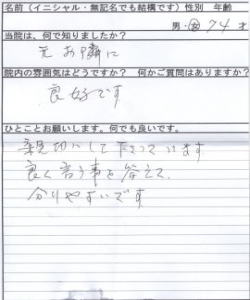 名前（イニシャル・無記名でも結構です）性別　年齢
男・女 74 才
当院は、何で知りましたか？
元お隣に
院内の雰囲気はどうですか？　何かご質問はありますか？
良好です
ひとことお願いします。何でも良いです。
親切にして下さっています
良く言う事を答えて
分りやすいです